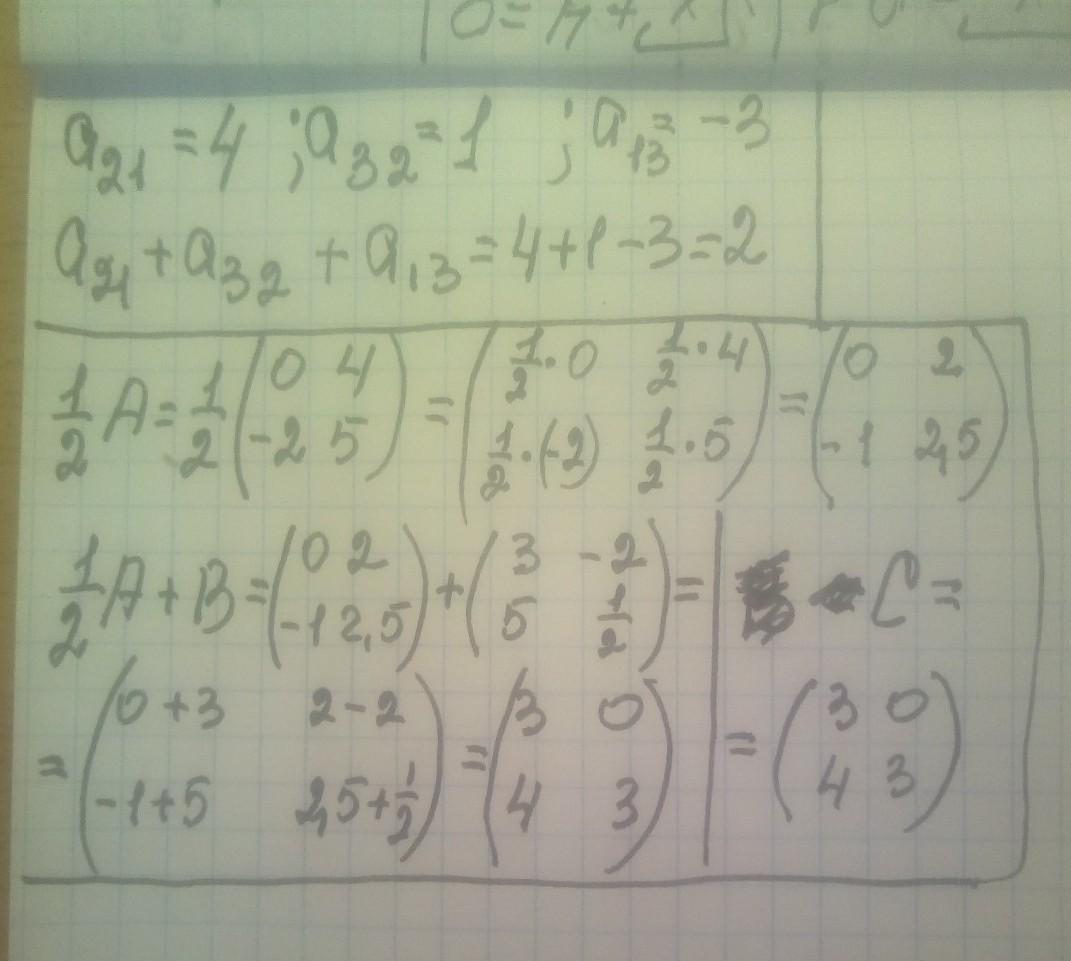 a₂₁ = 4 ; a₃₂ = 1 ; a₁₃ = -3
a₂₁ + a₃₂ + a₁₃ = 4 + 1 - 3 = 2
1/2 A = 1/2 (0 4; -2 5) = (1/2 · 0 1/2 · 4; 1/2 · (-2) 1/2 · 5) = (0 2; -1 2,5)
1/2 A + B = (0 2; -1 2,5) + (3 -2; 5 1/2) =
= (0 + 3 2 - 2; -1 + 5 2,5 + 1/2) = (3 0; 4 3)
C =
= (3 0; 4 3)